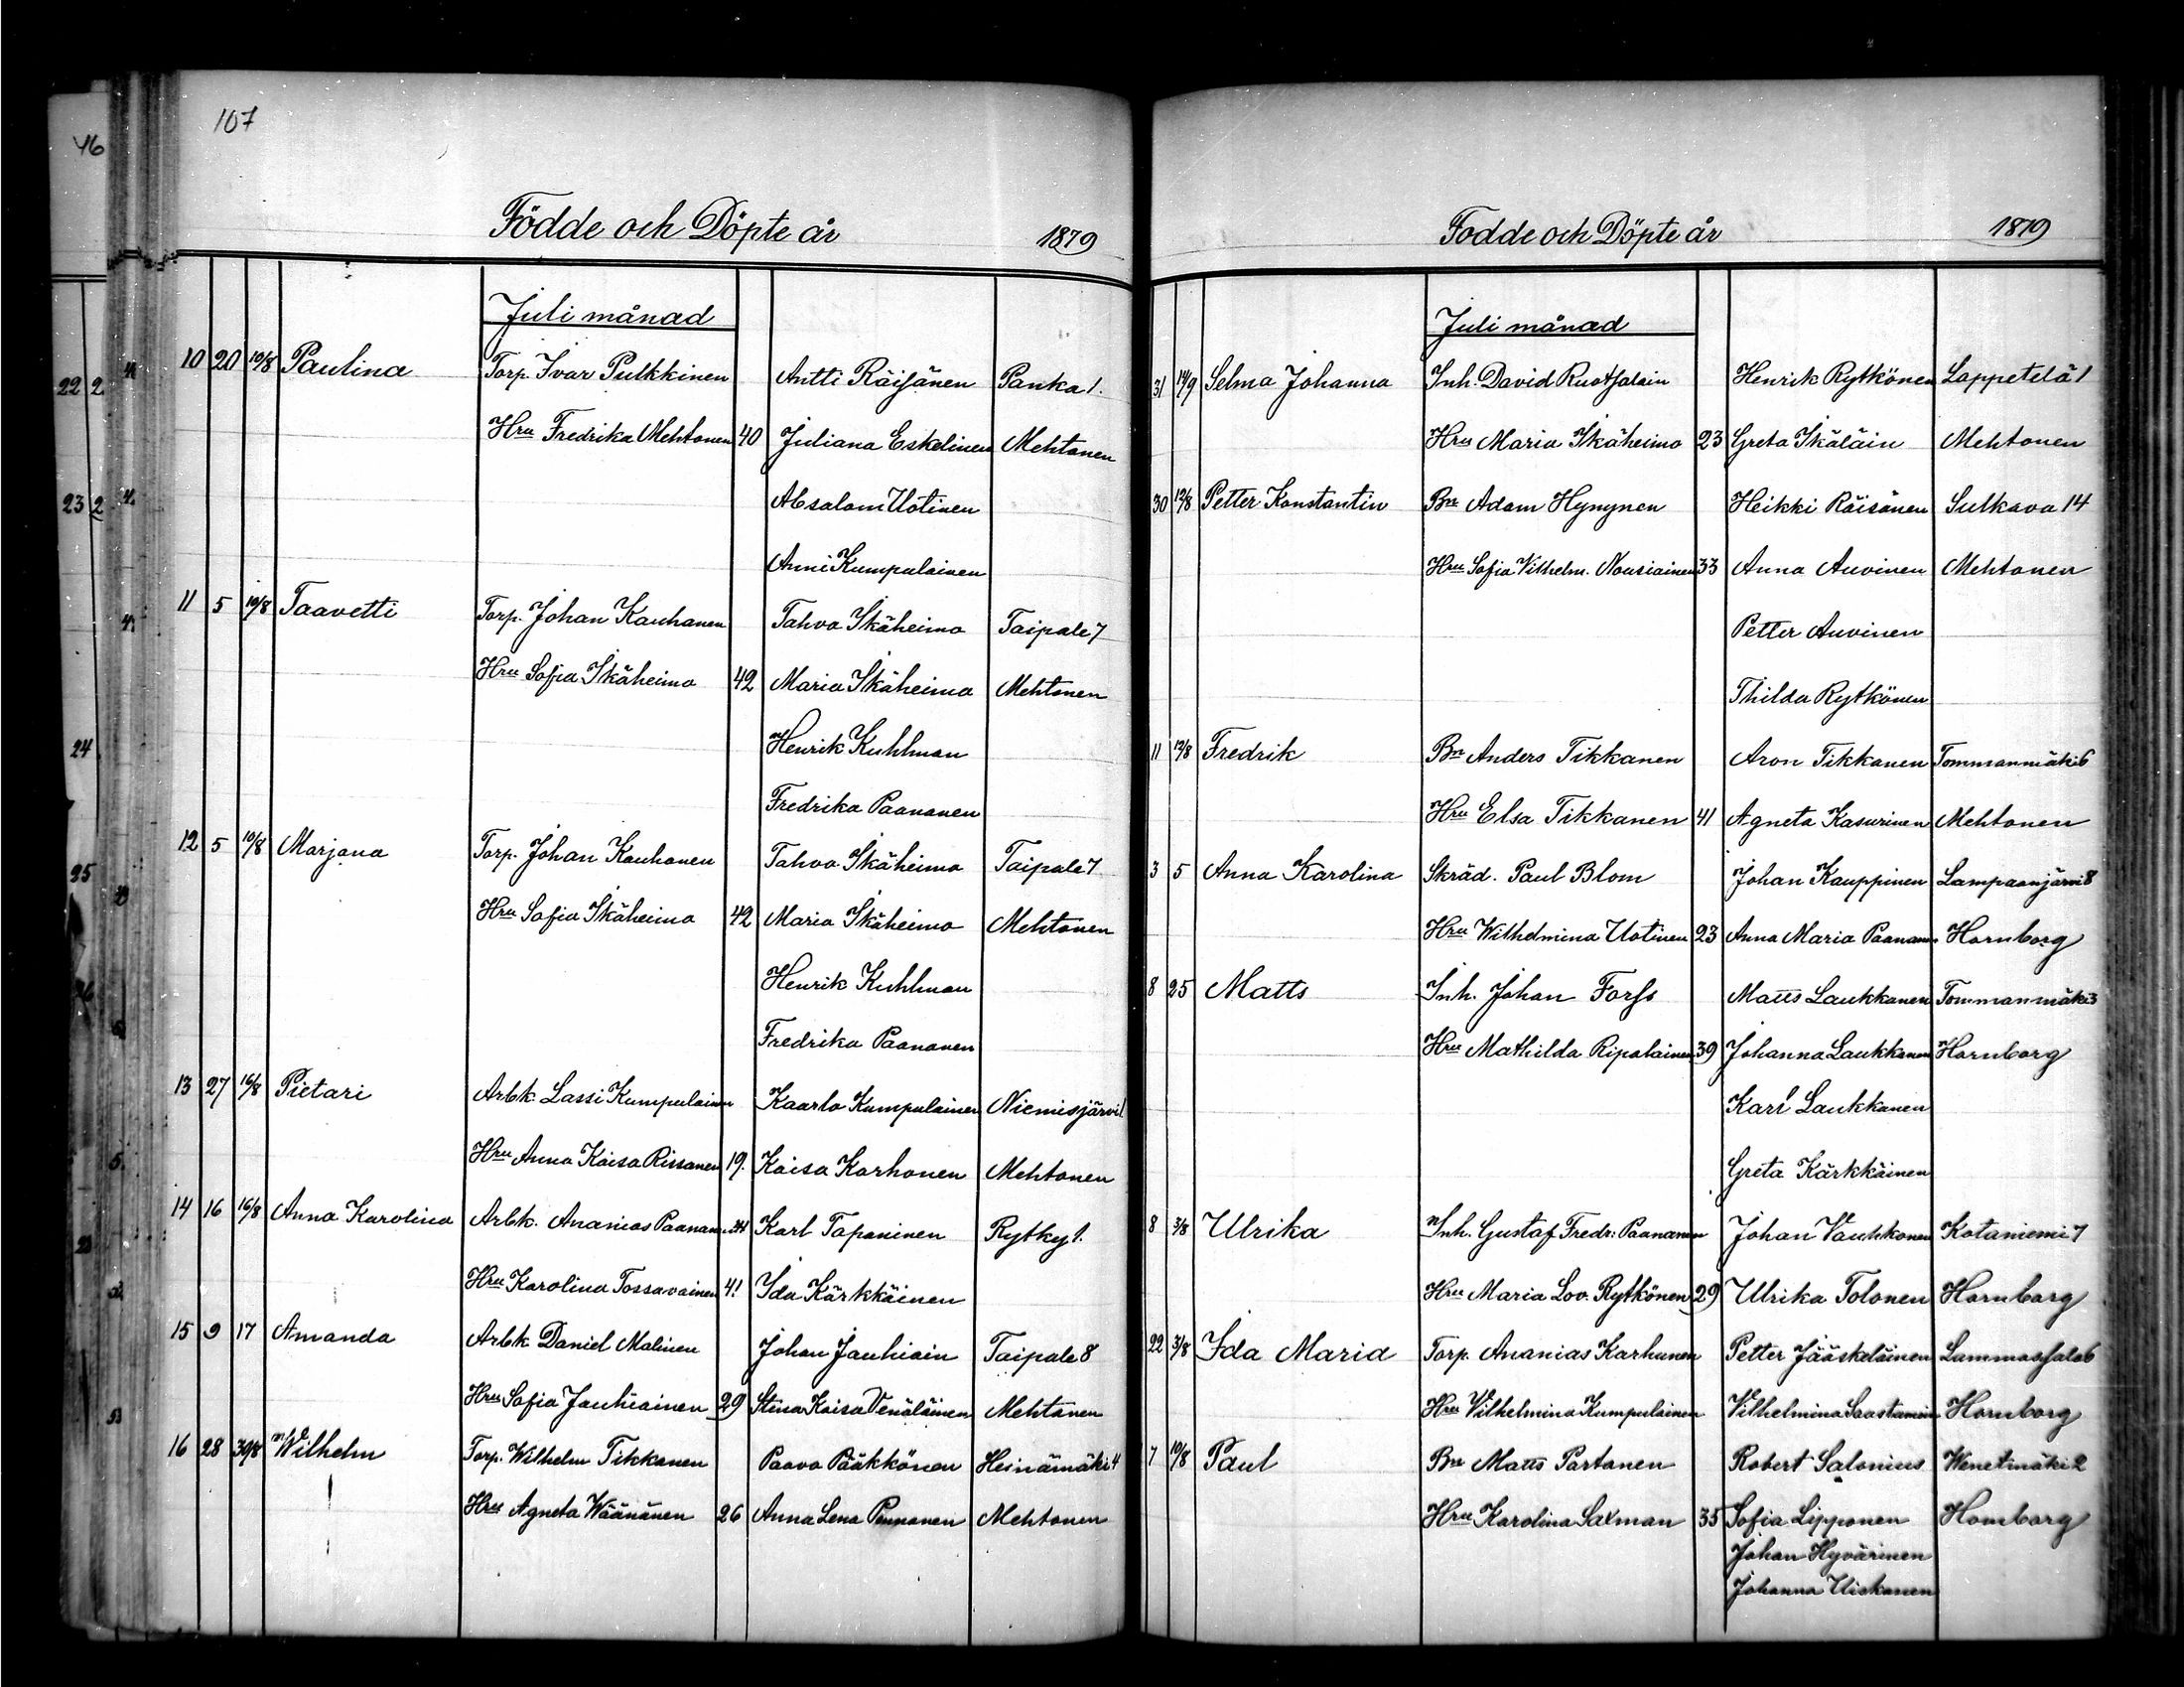 107
46
Födde och Döpte år 1879
Juli månad
10 20 10/8 Paulina Torp. Ivar Pulkkinen Antti Räisänen Panka 1.
Hru Fredrika Mehtonen 40 Juliana Eskelinen Mehtonen
Absalom Uotinen
Anni Kumpulainen
11 5 10/8 Taavetti Torp. Johan Kauhanen Tahvo Ikäheimo Taipale 7
Hru Sofia Ikäheimo 42 Maria Ikäheimo Mehtonen
Henrik Kuhlman
Fredrika Paananen
12 5 10/8 Marjana Torp. Johan Kauhanen Tahvo Ikäheimo Taipale 7
Hru Sofia Ikäheimo 42 Maria Ikäheimo Mehtonen
Henrik Kuhlman
Fredrika Paananen
13 27 16/8 Pietari Arbk. Lassi Kumpulainen Kaarlo Kumpulainen Niemisjärvi 1
Hru Anna Kaisa Rissanen 19. Kaisa Karhonen Mehtonen
14 16 16/8 Anna Karolina Arbk. Ananias Paananen Karl Tapaninen Rytky 1.
Hru Karolina Tossavainen 41 Ida Kärkkäinen
15 9 17 Amanda Arbk Daniel Malinen Johan Jauhiain Taipale 8
Hru Sofia Jauhiainen 29 Stina Kaisa Venäläinen Mehtonen
16 28 30/8 Wilhelm Torp. Wilhelm Tikkanen Paavo Pääkkönen Heinämäki 4
Hru Agneta Wäänänen 26 Anna Lena Pennanen Mehtonen
Födde och Döpte år 1879
Juli månad
31 14/9 Selma Johanna Inh. David Ruotsalain Henrik Rytkönen Lappetelä 1
Hru Maria Ikäheimo 23 Greta Ikäläin Mehtonen
30 12/8 Petter Konstantin Bn Adam Hynynen Heikki Räisänen Sulkava 14
Hru Sofia Vilhelm. Nousiainen 33 Anna Auvinen Mehtonen
Petter Auvinen
Thilda Rytkönen
11 12/8 Fredrik Bn Anders Tikkanen Aron Tikkanen Tommanmäki 6
Hru Elsa Tikkanen 41 Agneta Kasurinen Mehtonen
3 5 Anna Karolina Skräd. Paul Blom Johan Kauppinen Lampaanjärvi 8
Hru Wilhelmina Uotinen 23 Anna Maria Paananen Hornborg
8 25 Matts Inh. Johan Forss Matts Laukkanen Tommanmäki 3
Hru Mathilda Ripalainen 39 Johanna Laukkanen Hornborg
Karl Laukkanen
Greta Kärkkäinen
8 3/8 Ulrika Inh. Gustaf Fredr: Paananen Johan Vauhkonen Kotaniemi 7
Hru Maria Lov. Rytkönen 29 Ulrika Tolonen Hornborg
22 3/8 Ida Maria Torp. Ananias Karhunen Petter Jääskeläinen Lammassalo 6
Hru Vilhelmina Kumpulainen Vilhelmina Saastamoin Hornborg
7 10/8 Paul Bn Matts Partanen Robert Salonius Wenetmäki 2
Hru Karolina Saxman 35 Sofia Lipponen Hornborg
Johan Hyvärinen
Johanna Uiskanen